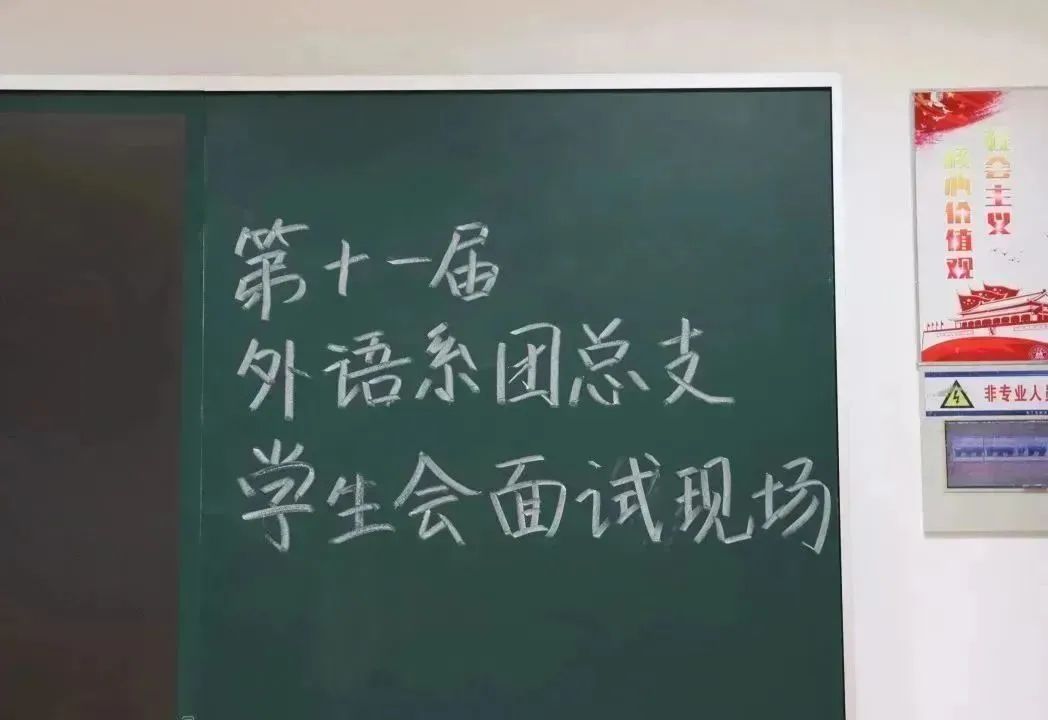 第十一届
外语系团总支
学生会面试现场
社会主义
核心价值观
非专业人员